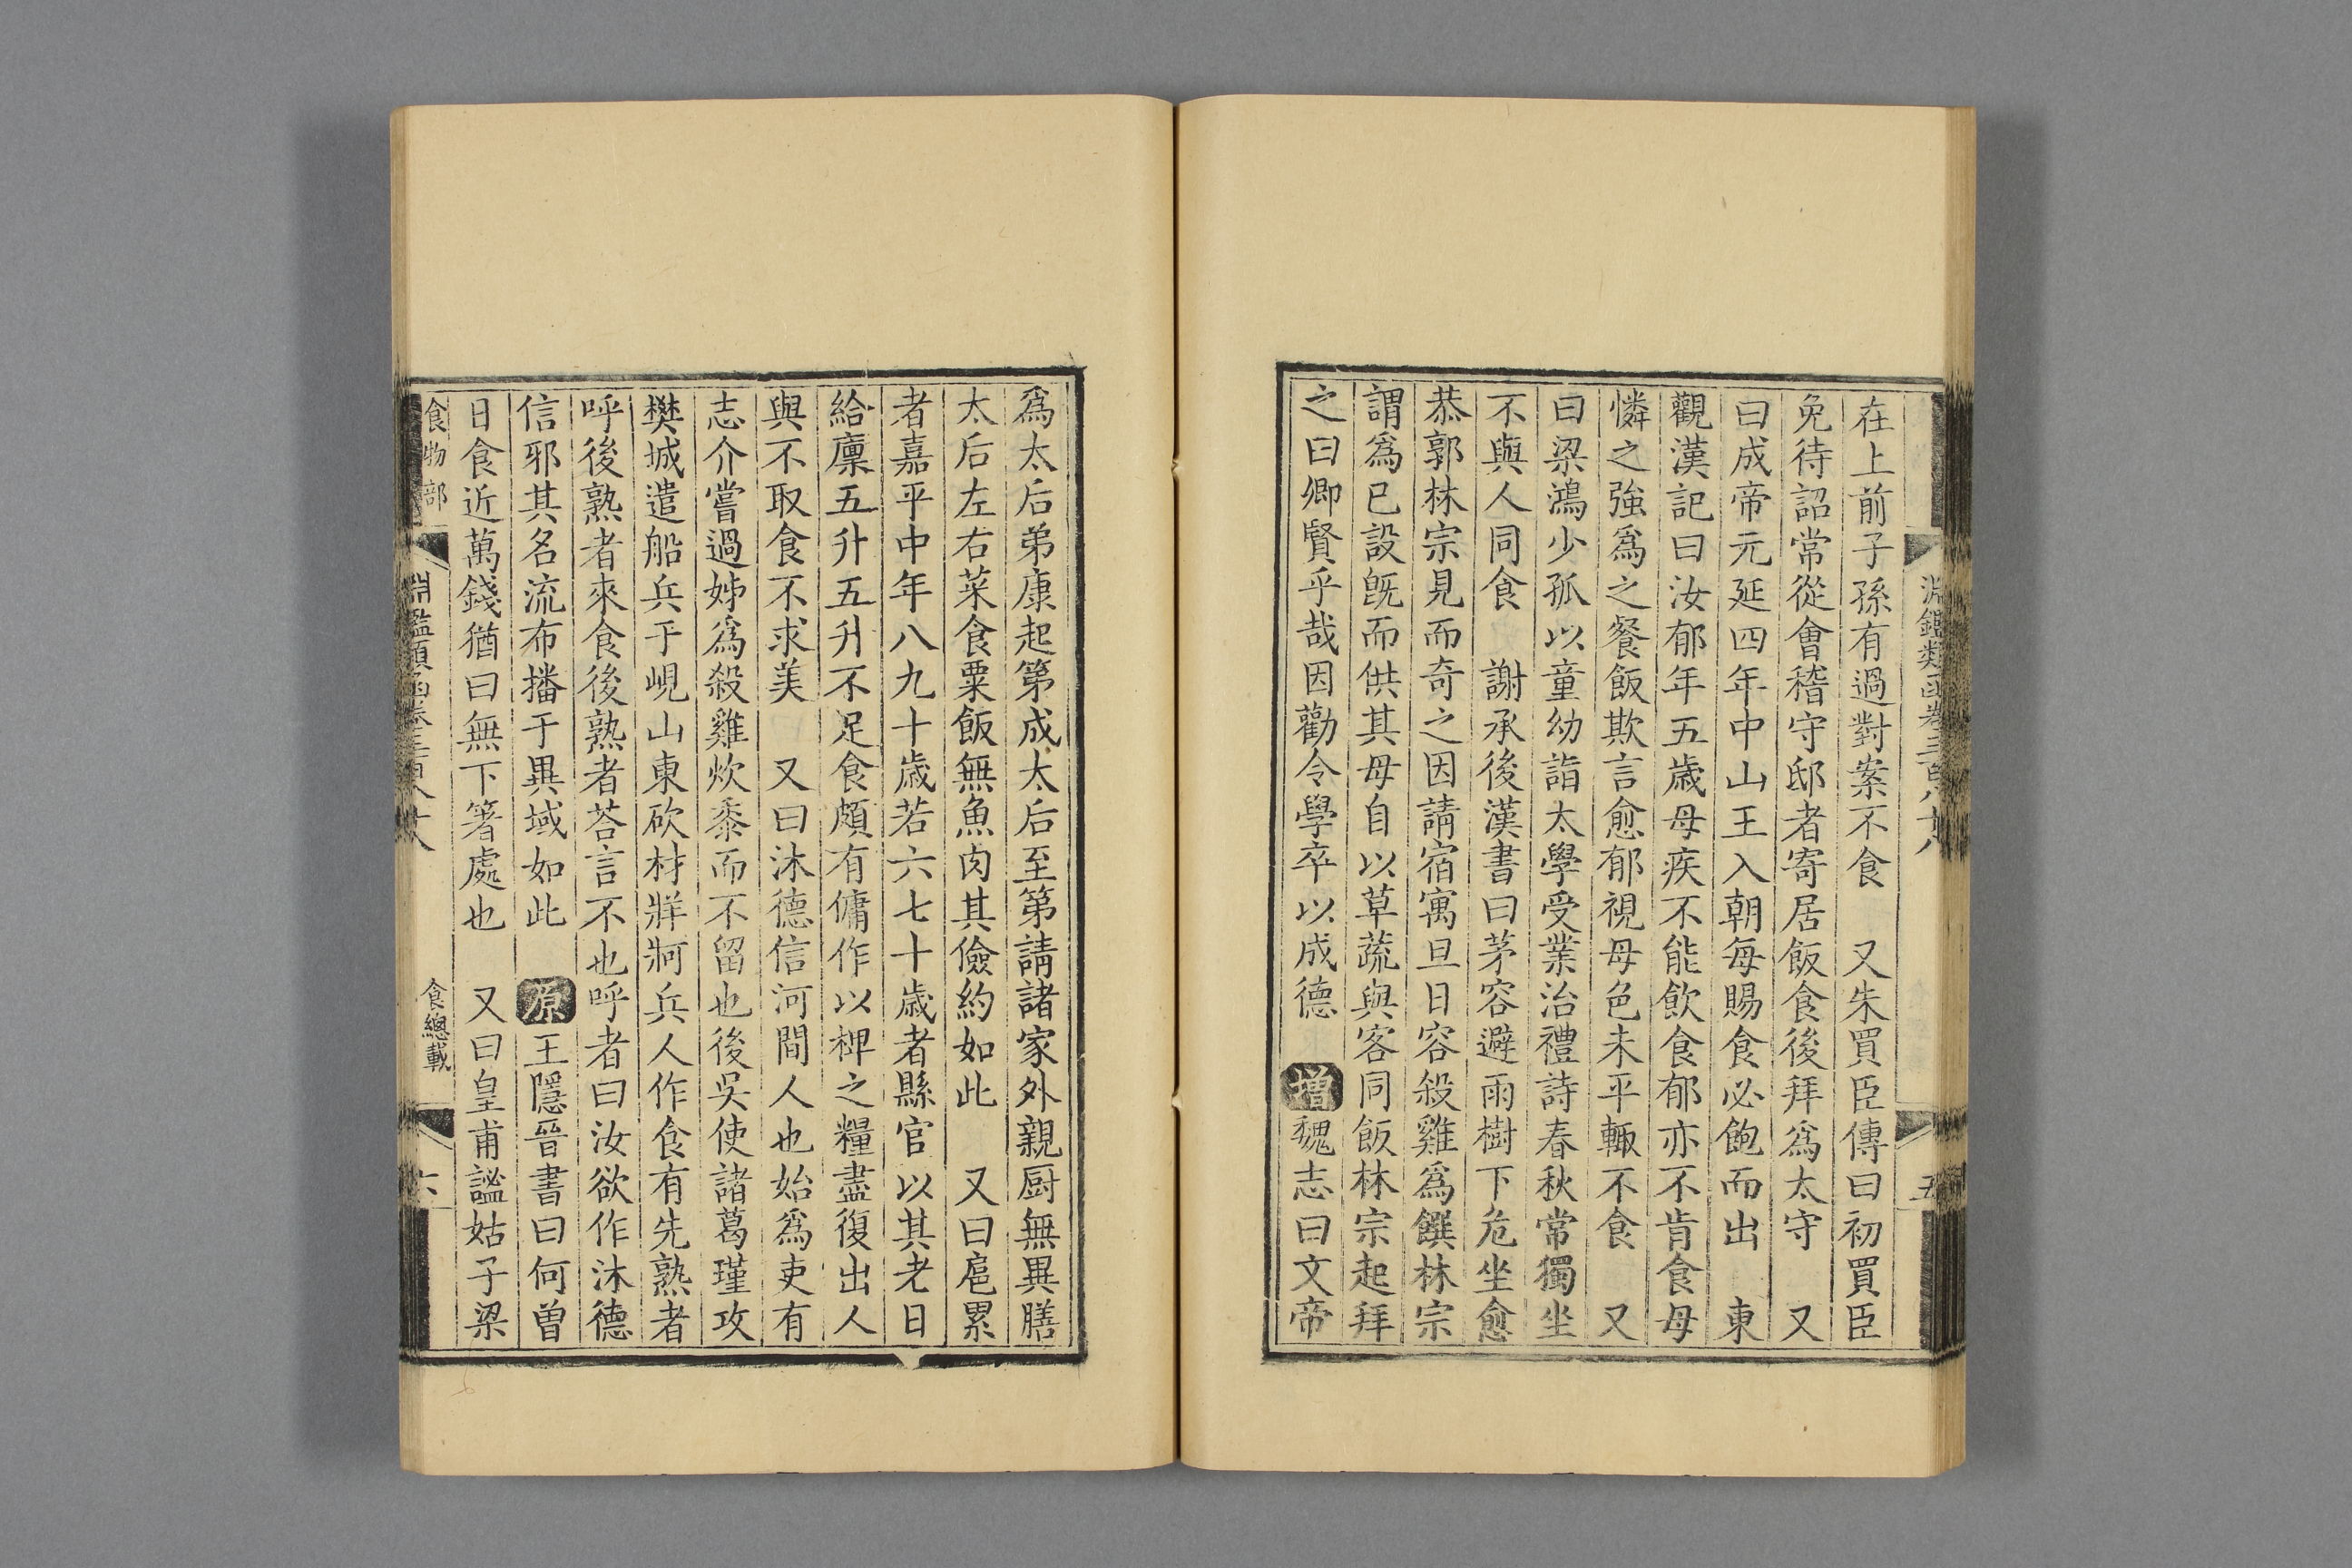 淵鑑類函卷三百八十八
五
在上前子孫有過對案不食　又朱買臣傳曰初買臣
免待詔常從會稽守邸者寄居飯食後拜爲太守　又
曰成帝元延四年中山王入朝每賜食必飽而出　東
觀漢記曰汝郁年五歲母疾不能飲食郁亦不肯食母
憐之強爲之餐飯欺言愈郁視母色未平輙不食　又
曰梁鴻少孤以童幼詣太學受業治禮詩春秋常獨坐
不與人同食　謝承後漢書曰茅容避雨樹下危坐愈
恭郭林宗見而奇之因請宿寓旦日容殺雞爲饌林宗
謂爲已設旣而供其母自以草蔬與客同飯林宗起拜
之曰卿賢乎哉因勸令學卒以成德　增魏志曰文帝
爲太后弟康起第成太后至第請諸家外親厨無異膳
太后左右菜食粟飯無魚肉其儉約如此　又曰扈累
者嘉平中年八九十歲若六七十歲者縣官以其老日
給廩五升五升不足食頗有傭作以裨之糧盡復出人
與不取食不求美　又曰沐德信河間人也始爲吏有
志介嘗過姊爲殺雞炊黍而不留也後吳使諸葛瑾攻
樊城遣船兵于峴山東砍材牂牁兵人作食有先熟者
呼後熟者來食後熟者荅言不也呼者曰汝欲作沐德
信邪其名流布播于異域如此　原王隱晉書曰何曾
日食近萬錢猶曰無下箸處也　又曰皇甫謐姑子梁
食物部
淵鑑類函卷三百八十八
食總載
六